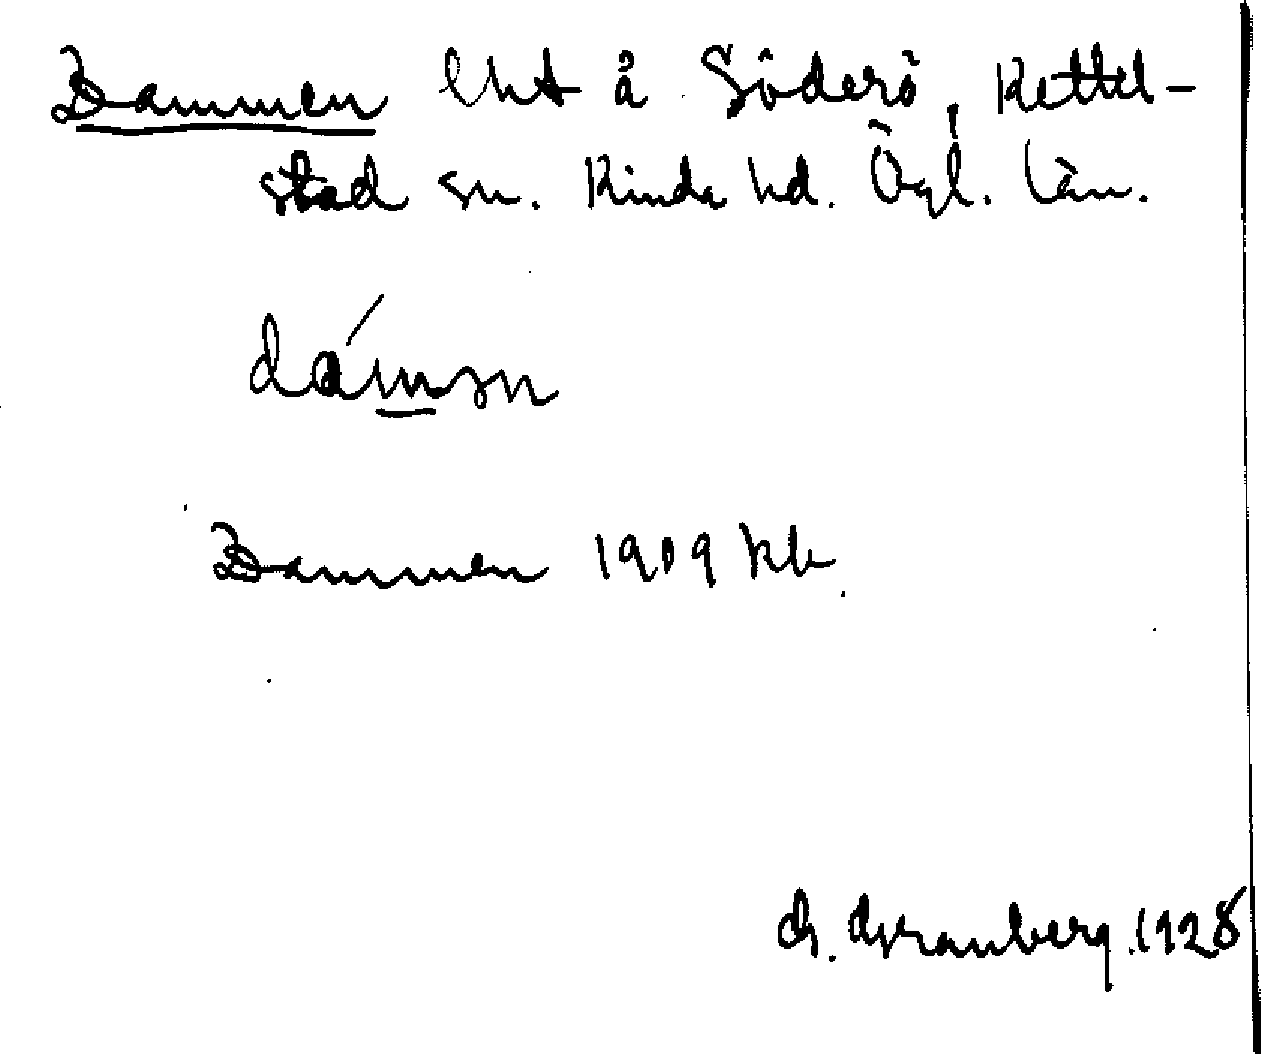 Dammen lht å Söderö, Kettil-
stad sn. Kinda hd. Ögl. län.
dám̲ən
Dammen 1909 kb
G. Granberg 1928